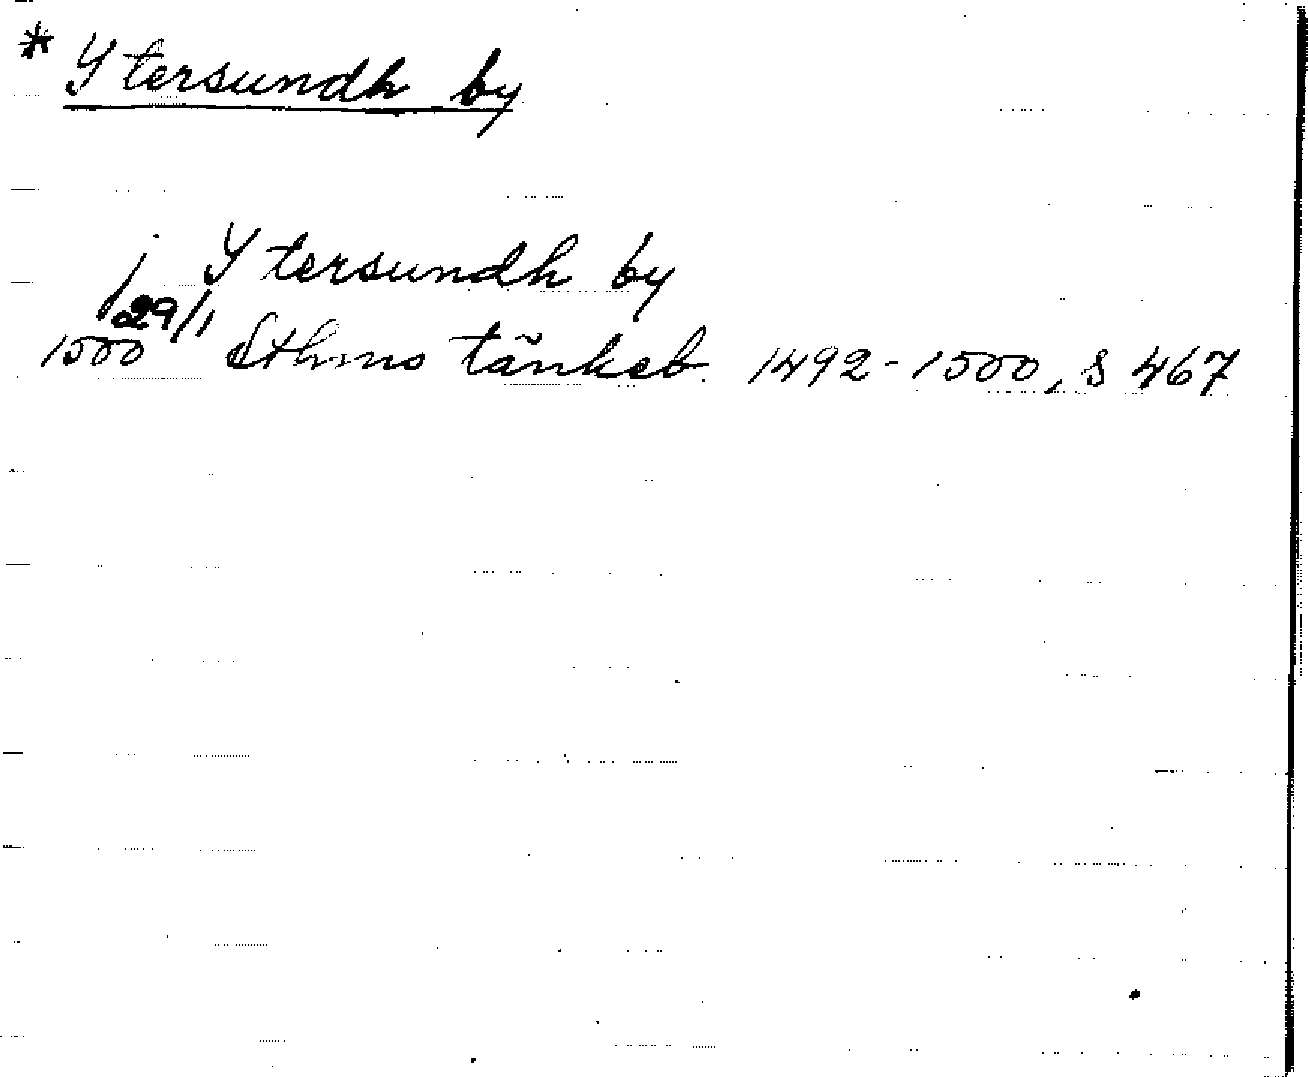 * Ytersundh by
j Ytersundh by
1500 29/1 Sthms tänkeb. 1492-1500, s 467